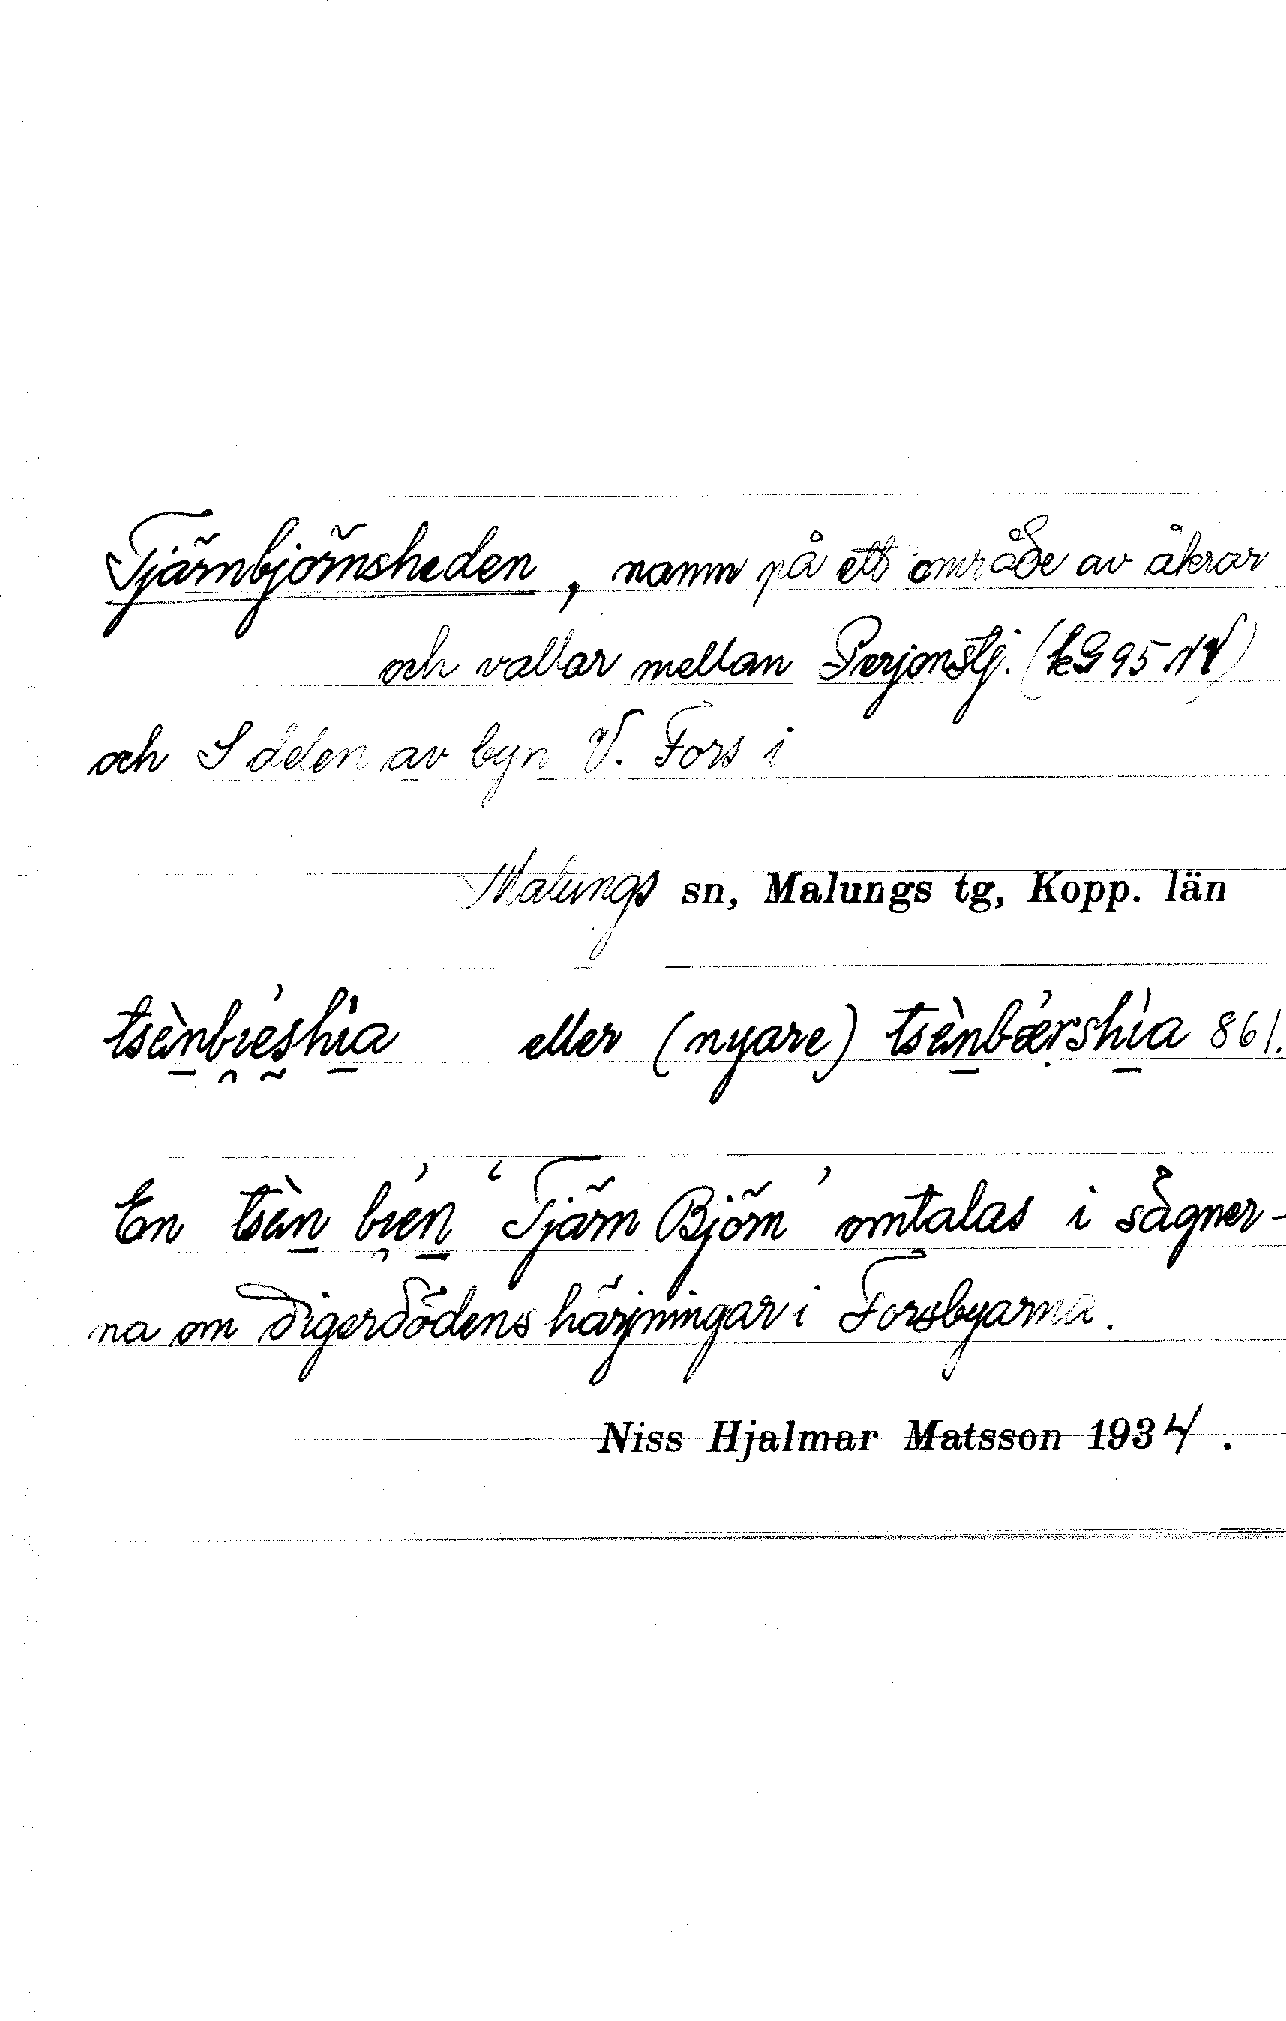 Tjärnbjörnsheden, namn på ett område av åkrar
och vallar mellan Perjonstj. (kG 95 NV)
och S delen av byn V. Fors i
Malungs sn, Malungs tg, Kopp. län
tsènbi̯és̰hìa eller (nyare) tsènbǽrshìa 861.
En tsèn bi̯én 'Tjärn Björn' omtalas i sägner-
na om digerdödens härjningar i Forsbyarna.
Niss Hjalmar Matsson 1934.